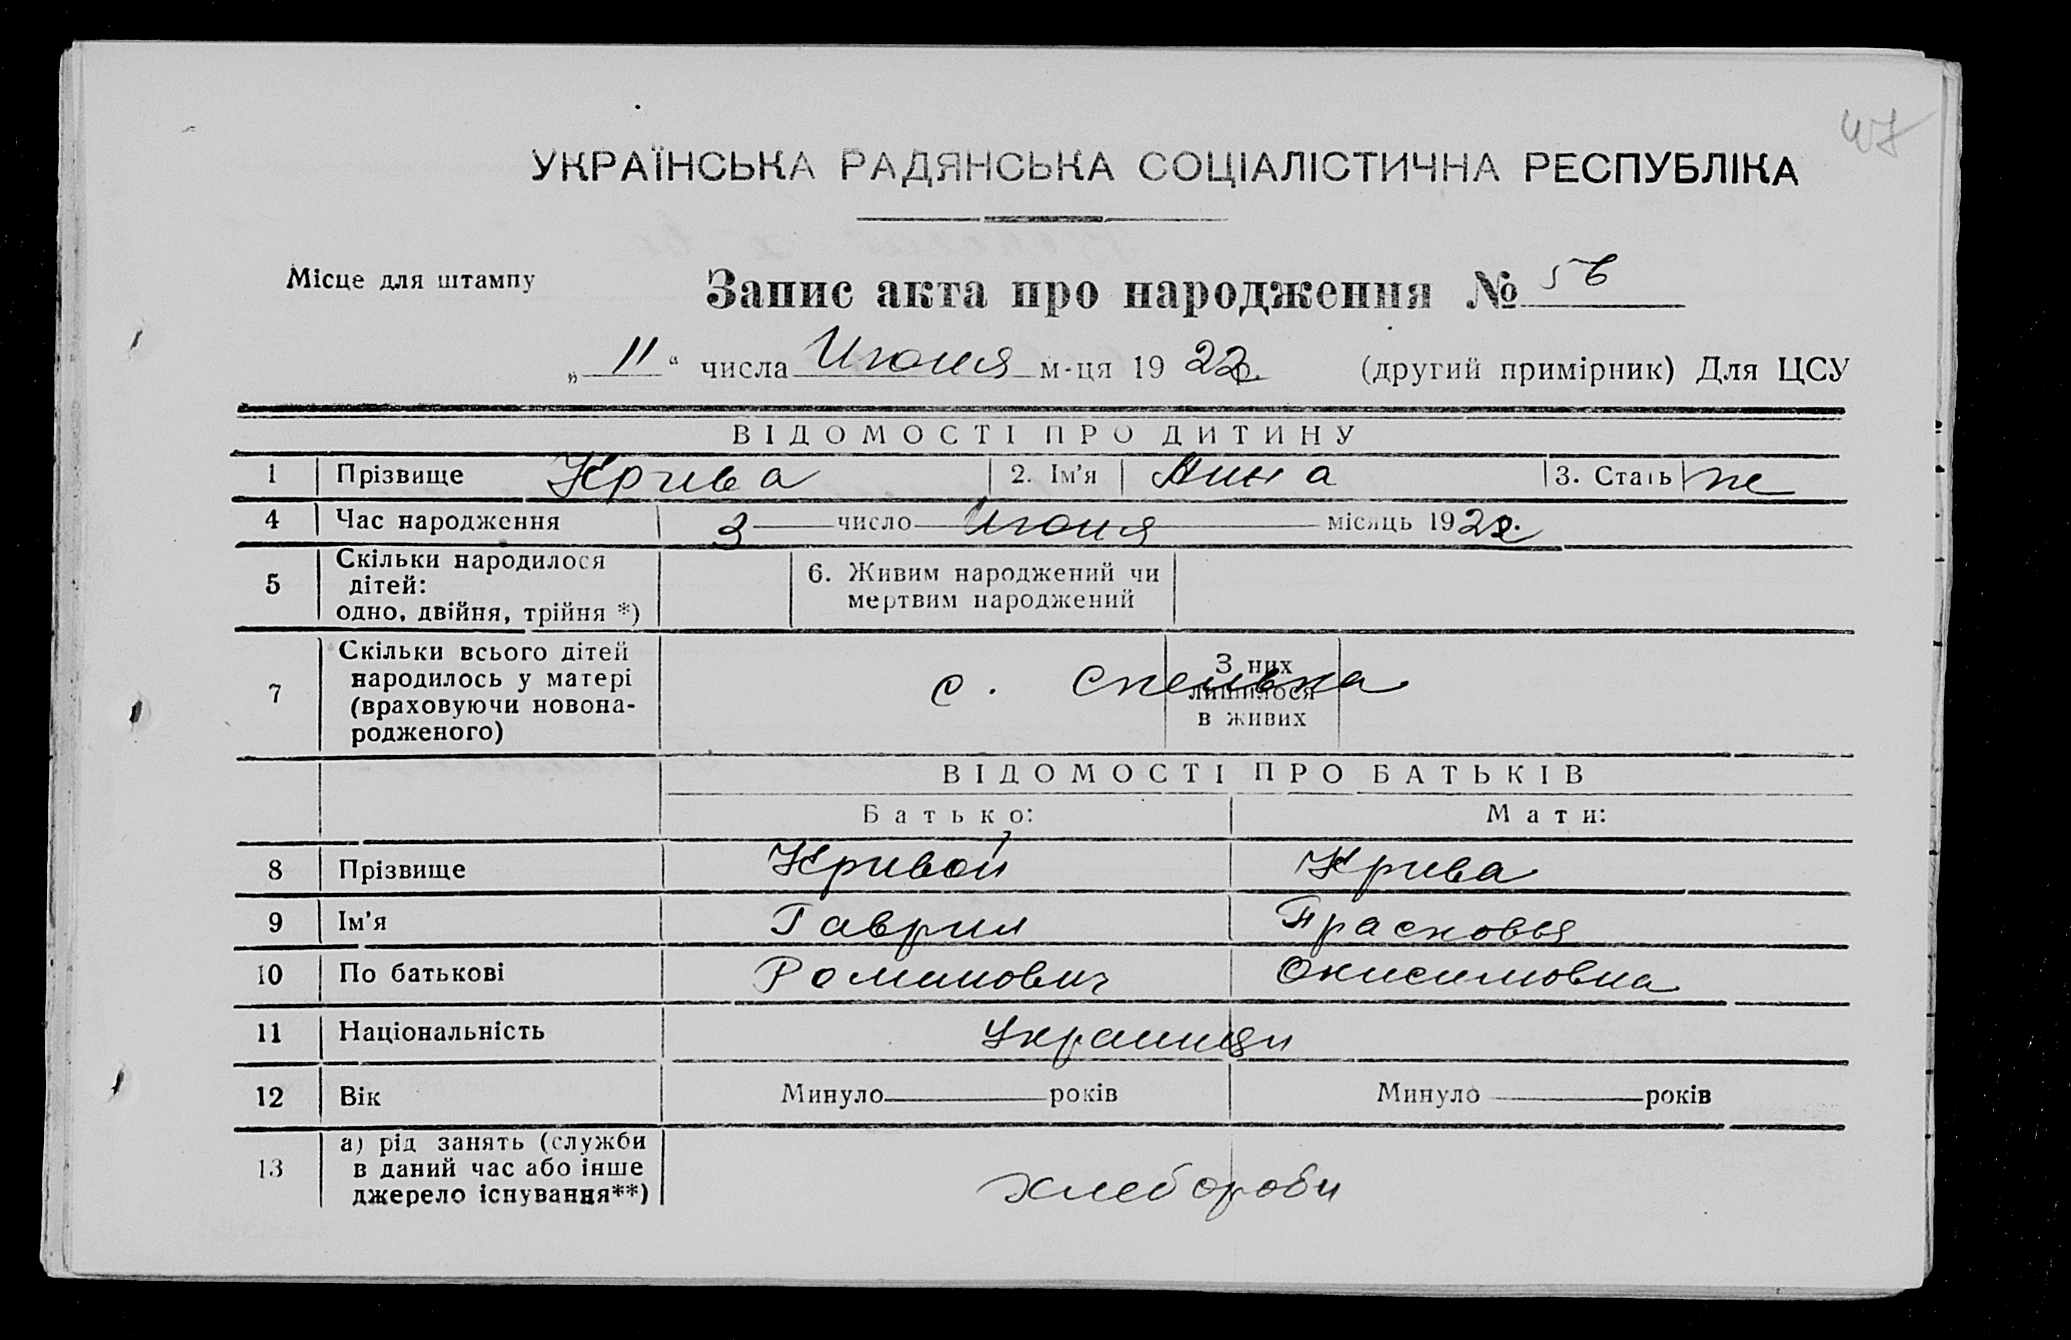 47
УКРАЇНСЬКА РАДЯНСЬКА СОЦІАЛІСТИЧНА РЕСПУБЛІКА
Місце для штампу
Запис акта про народження № 56
„ 11 “ числа Июня м-ця 19 22г. (другий примірник) Для ЦСУ
ВІДОМОСТІ ПРО ДИТИНУ
1 Прізвище Крива 2. Ім’я Анна 3. Стать ж
4 Час народження 3 число Июня місяць 1922г.
5 Скільки народилося дітей: одно, двійня, трійня *) 6. Живим народжений чи мертвим народжений
7 Скільки всього дітей народилось у матері (враховуючи новонародженого) З них лишилося в живих
с.
ВІДОМОСТІ ПРО БАТЬКІВ
Батько: Мати:
8 Прізвище Кривой Крива
9 Ім’я Гаврил Прасковья
10 По батькові Романович Онисимовна
11 Національність Украинци
12 Вік Минуло років Минуло років
13 а) рід занять (служби в даний час або інше джерело існування**) хлебороби